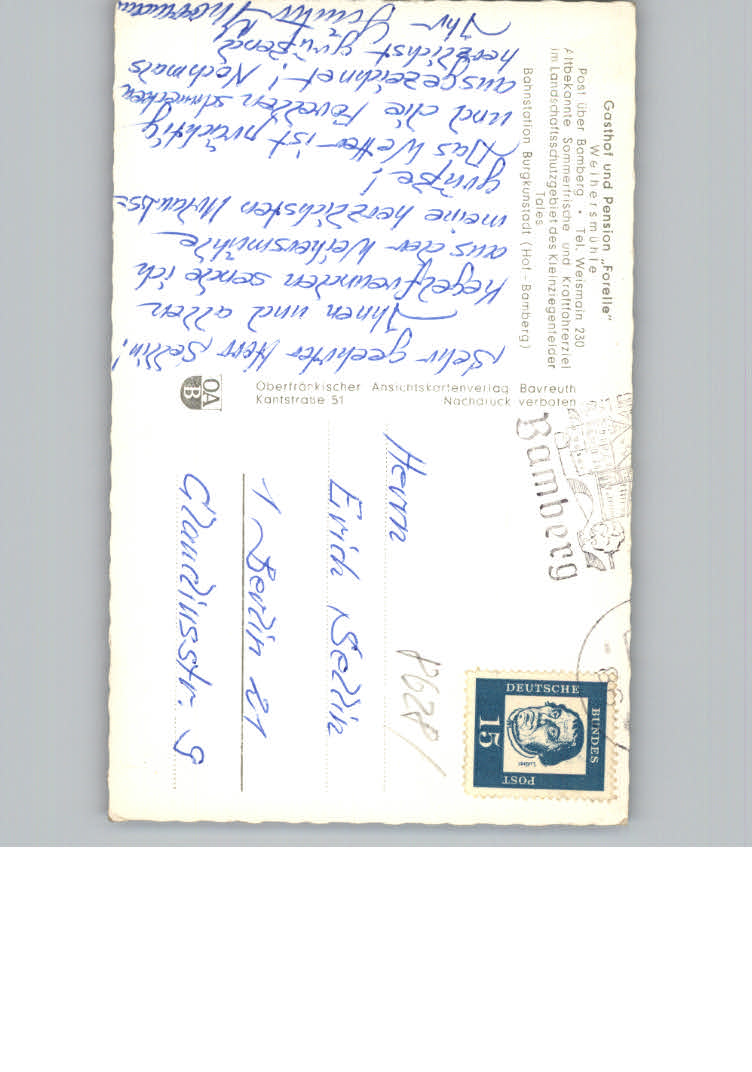 Gasthof und Pension „Forelle"
Weihersmühle
Post über Bamberg • Tel. Weismain 230
Altbekannte Sommerfrische und Kraftfahrerziel
im Landschaftsschutzgebiet des Kleinziegenfelder
Tales
Bahnstation Burgkunstadt (Hof - Bamberg)
Sehr geehrter Herr Sellin!
Ihnen und allen
Kegelfreunden sende ich
aus der Weihersmühle
meine herzlichsten Urlaubs=
grüße!
Das Wetter ist prächtig
und die Forellen schmecken
ausgezeichnet! Nochmals
herzlichst grüßend
Ihr Günter
Oberfränkischer Ansichtskartenverlag Bayreuth
Kantstraße 51 Nachdruck verboten
OA
B
Bamberg
DEUTSCHE
BUNDES
POST
15
Luther
8628
Herrn
Erich Sellin
1 Berlin 21
Claudiusstr. 9